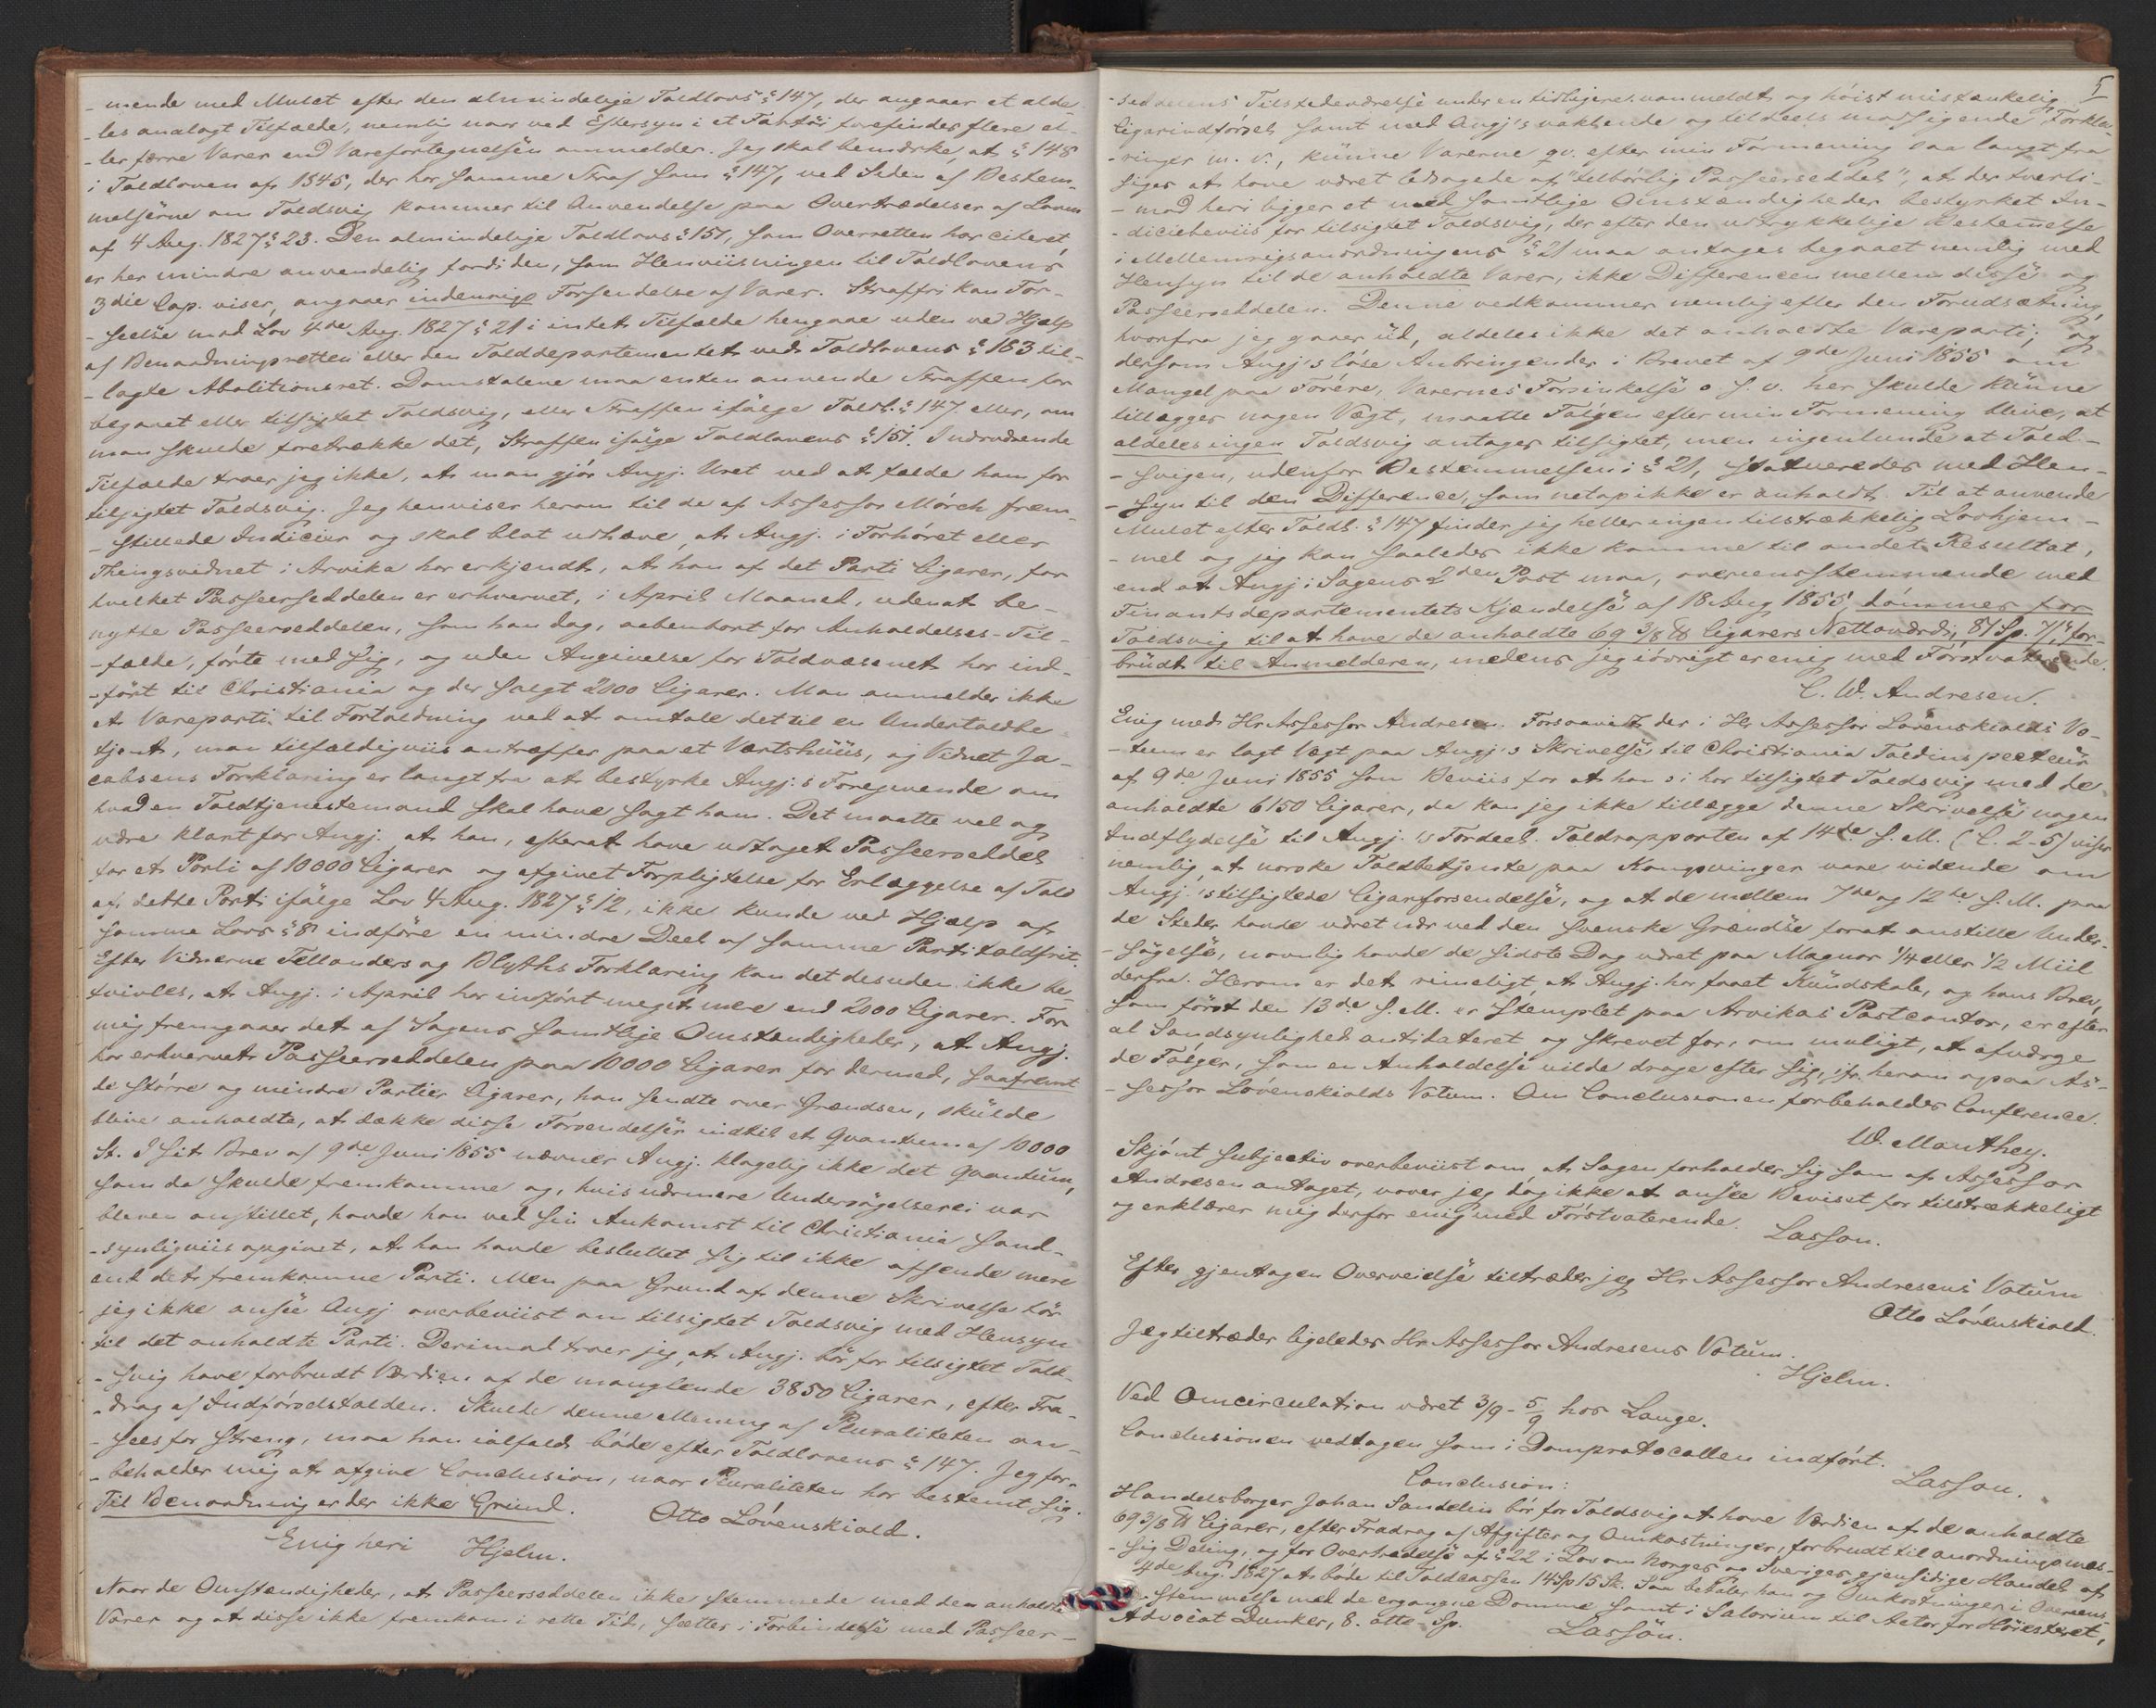 - mende med Mulct efter den almindelige Toldlovs § 147, der angaaer et alde-
- les analogt Tilfælde, nemlig naar ved Eftersyn i et Fartöi forefindes flere el-
- ler færre Varer end Varefortegnelsen anmelder. Jeg skal bemærke, at § 148
i Toldloven af 1845, der har samme Straf som § 147, ved Siden af Bestem-
melserne om Toldsvig kommer til Anvendelse paa Overtrædelser af Loven
af 4 Aug. 1827 § 23. Den almindelige Toldlovs § 151, som Overretten har citeret,
er her mindre anvendelig fordi den, som Henviisningen til Toldlovens
3die Cap. viser, angaaer indenrigs Forsendelse af Varer. Straffri kan For-
- seelse mod Lov 4de Aug. 1827 § 21 i intet Tilfælde hengaae uden ved Hjelp
af Benaadningsretten eller den Tolddepartementet ved Toldlovens § 163 til-
- lagte Abolitionsret. Domstolene maa enten anvende Straffen for
begaaet eller tilsigtet Toldsvig, eller Straffen ifölge Toldl. § 147 eller, om
man skulde foretrække det, Straffen ifölge Toldlovens § 151. I nærværende
Tilfælde troer jeg ikke, at man gjör Angj. Uret ved at fælde ham for
tilsigtet Toldsvig. Jeg henviser herom til de af Assessor Mörch frem-
- stillede Indicier og skal blot udhæve, at Angj. i Forhöret eller
Thingsvidnet i Arvika har erkjendt, at han af det Parti Cigarer, for
hvilket Passeerseddelen er erhvervet, i April Maaned, uden at be-
nytte Passeerseddelen, som han dog, aabenbart for Anholdelses-Til-
- fælde, förte med sig, og uden Angivelse for Toldvæsenet har ind-
- fört til Christiania og der solgt 2000 Cigarer. Man anmelder ikke
et Vareparti til Fortoldning ved at omtale det til en Undertoldbe-
tjent, man tilfældigviis antræffer paa et Værtshuus, og Vidnet Ja-
cobsens Forklaring er langt fra at bestyrke Angj.s Foregivende om
hvad en Toldtjenestemand skal have sagt ham. Det maatte vel og
være klart for Angj. at han, efterat have udtaget Passeerseddel
for et Parti af 10000 Cigarer og afgivet Forpligtelse for Erlæggelse af Told
af dette Parti ifölge Lov 4 Aug. 1827 § 12, ikke kunde ved Hjelp af
samme Lovs § 8 indföre en mindre Deel af samme Parti toldfrit.
Efter Vidnerne Fellanders og Blyths Forklaring kan det desuden ikke be-
tvivles, at Angj. i April har indfört meget mere end 2000 Cigarer. For
mig fremgaaer det af Sagens samtlige Omstændigheder, at Angj.
har erhvervet Passeerseddelen paa 10000 Cigarer for dermed, saafremt
de större og mindre Partier Cigarer, han sendte over Grændsen, skulde
blive anholdte, at dække disse Forsendelser indtil et Qvantum af 10000
St. I sit Brev af 9de Juni 1855 nævner Angj. klogelig ikke det Qvantum,
som da skulde fremkomme og, hvis nærmere Undersögelse ei var
bleven anstillet, havde han ved sin Ankomst til Christiania sand-
- synligviis opgivet, at han havde besluttet sig til ikke afsende mere
end det fremkomne Parti. Men paa Grund af denne Skrivelse tör
jeg ikke ansee Angj overbeviist om tilsigtet Toldsvig med Hensyn
til det anholdte Parti. Derimod troer jeg, at Angj. bör for tilsigtet Told-
- svig have forbrudt Værdien af de manglende 3850 Cigarer, efter Fra-
- drag af Indförselstolden. Skulde denne Mening af Pluraliteten an-
- sees for streng, maa han ialfald böde efter Toldlovens § 147. Jeg for-
- beholder mig at afgive Conclusion, naar Pluraliteten har bestemt sig.
Til Benaadning er der ikke Grund.
Otto Lövenskiold.
Enig heri Hjelm.
Naar de Omstændigheder, at Passeerseddelen ikke stemmede med den anholdte
Varer og at disse ikke fremkom i rette Tid, sættes i Forbindelse med Passeer-
5
- seddelens Tilstedeværelse under en tidligere uanmeldt og höist mistænkelig
Cigarindförsel samt med Angj's vaklende og tildeels modsigende Forkla-
- ringer m. v., kunne Varerne qv. efter min Formening saa langt fra
siges at have været ledsagede af "tilbörlig Passeerseddel", at der tverti-
- mod heri ligger et med samtlige Omstændigheder bestyrket In-
- diciebeviis for tilsigtet Toldsvig, der efter den udtrykkelige Bestemmelse
i Mellemrigsanordningens § 21 maa antages begaaet nemlig med
Hensyn til de anholdte Varer, ikke Differencen mellem disse og
Passeerseddelen. Denne vedkommer nemlig efter den Forudsætning,
hvorfra jeg gaaer ud, aldeles ikke det anholdte Vareparti; og
dersom Angj's löse Anbringender i Brevet af 9de Juni 1855 om
Mangel paa Före, Varernes Forsinkelse o. s. v. her skulde kunne
tillægges nogen Vægt, maatte Fölgen efter min Formening blive, at
aldeles ingen Toldsvig antages tilsigtet, men ingenlunde at Told-
- svigen, udenfor Bestemmelsen i § 21, statueredes med Hen-
- syn til den Difference, som netop ikke er anholdt. Til at anvende
Mulct efter Toldl. § 147 finder jeg heller ingen tilstrækkelig Lovhjem-
- mel og jeg kan saaledes ikke komme til andet Resultat,
end at Angj. i Sagens 2den Post maa, overeensstemmende med
Finantsdepartementets Kjændelse af 18 Aug 1855, dömmes for
Toldsvig til at have de anholdte 69 3/8 ℔ Cigarers Nettoværdi, 81 Sp. 7 ß, for-
brudt til Anmelderen, medens jeg iövrigt er enig med Förstvoterende.
C. W. Andresen.
Enig med Hr Assessor Andresen. Forsaavidt der i Hr Assessor Lövenskiolds Vo-
- tum er lagt Vægt paa Angj's Skrivelse til Christiania Toldinspecteur
af 9de Juni 1855 som Beviis for at han ei har tilsigtet Toldsvig med de
anholdte 6150 Cigarer, da kan jeg ikke tillægge denne Skrivelse nogen
Indflydelse til Angj.'s Fordeel. Toldrapporten af 14de s. M. (C. 2-5) viser
nemlig, at norske Toldbetjente paa Kongsvinger vare vidende om
Angj.'s tilsigtede Cigarforsendelse, og at de mellem 7de og 12te s. M. paa
de Steder havde været nær ved den svenske Grændse forat anstille Under-
- sögelse, navnlig havde de sidste Dag været paa Magnor 1/4 eller 1/2 Miil
derfra. Herom er det rimeligt, at Angj. har faaet Kundskab, og hans Brev,
som först den 13de s. M. er stemplet paa Arvikas Postcontor, er efter
al Sandsynlighed antidateret og skrevet for, om muligt, at afværge
de Fölger, som en Anholdelse vilde drage efter sig, jfr. herom ogsaa As-
- sessor Lövenskiolds Votum. Om Conclusionen forbeholdes Conference.
W. Manthey.
Skjönt subjectiv overbeviist om, at Sagen forholder sig som af Assessor
Andresen antaget, vover jeg dog ikke at ansee Beviset for tilstrækkeligt
og erklærer mig derfor enig med Förstvoterende.
Lasson.
Efter gjentagen Overveielse tiltræder jeg Hr Assessor Andresens Votum
Otto Lövenskiold.
Jeg tiltræder ligeledes Hr Assessor Andresens Votum.
Hjelm.
Ved Omcirculation været 3/9 - 5/9 hos Lange.
Conclusionen vedtagen som i Domprotocollen indfört.
Lasson.
Conclusion:
Handelsborger Johan Sandelin bör for Toldsvig at have Værdien af de anholdte
69 3/8 ℔ Cigarer, efter Fradrag af Afgifter og Omkostninger, forbrudt til anordningsmæs-
- sig Deling, og for Overtrædelse af § 22 i Lov om Norges og Sveriges gjensidige Handel af
4de Aug. 1827 at böde til Toldcassen 14 Sp 15 Sk. Saa betaler han og Omkostninger i Overens-
- stemmelse med de ergangne Domme samt i Salarium til Actor for Höiesteret,
Advocat Dunker, 8. otte Sp.
Lasson.